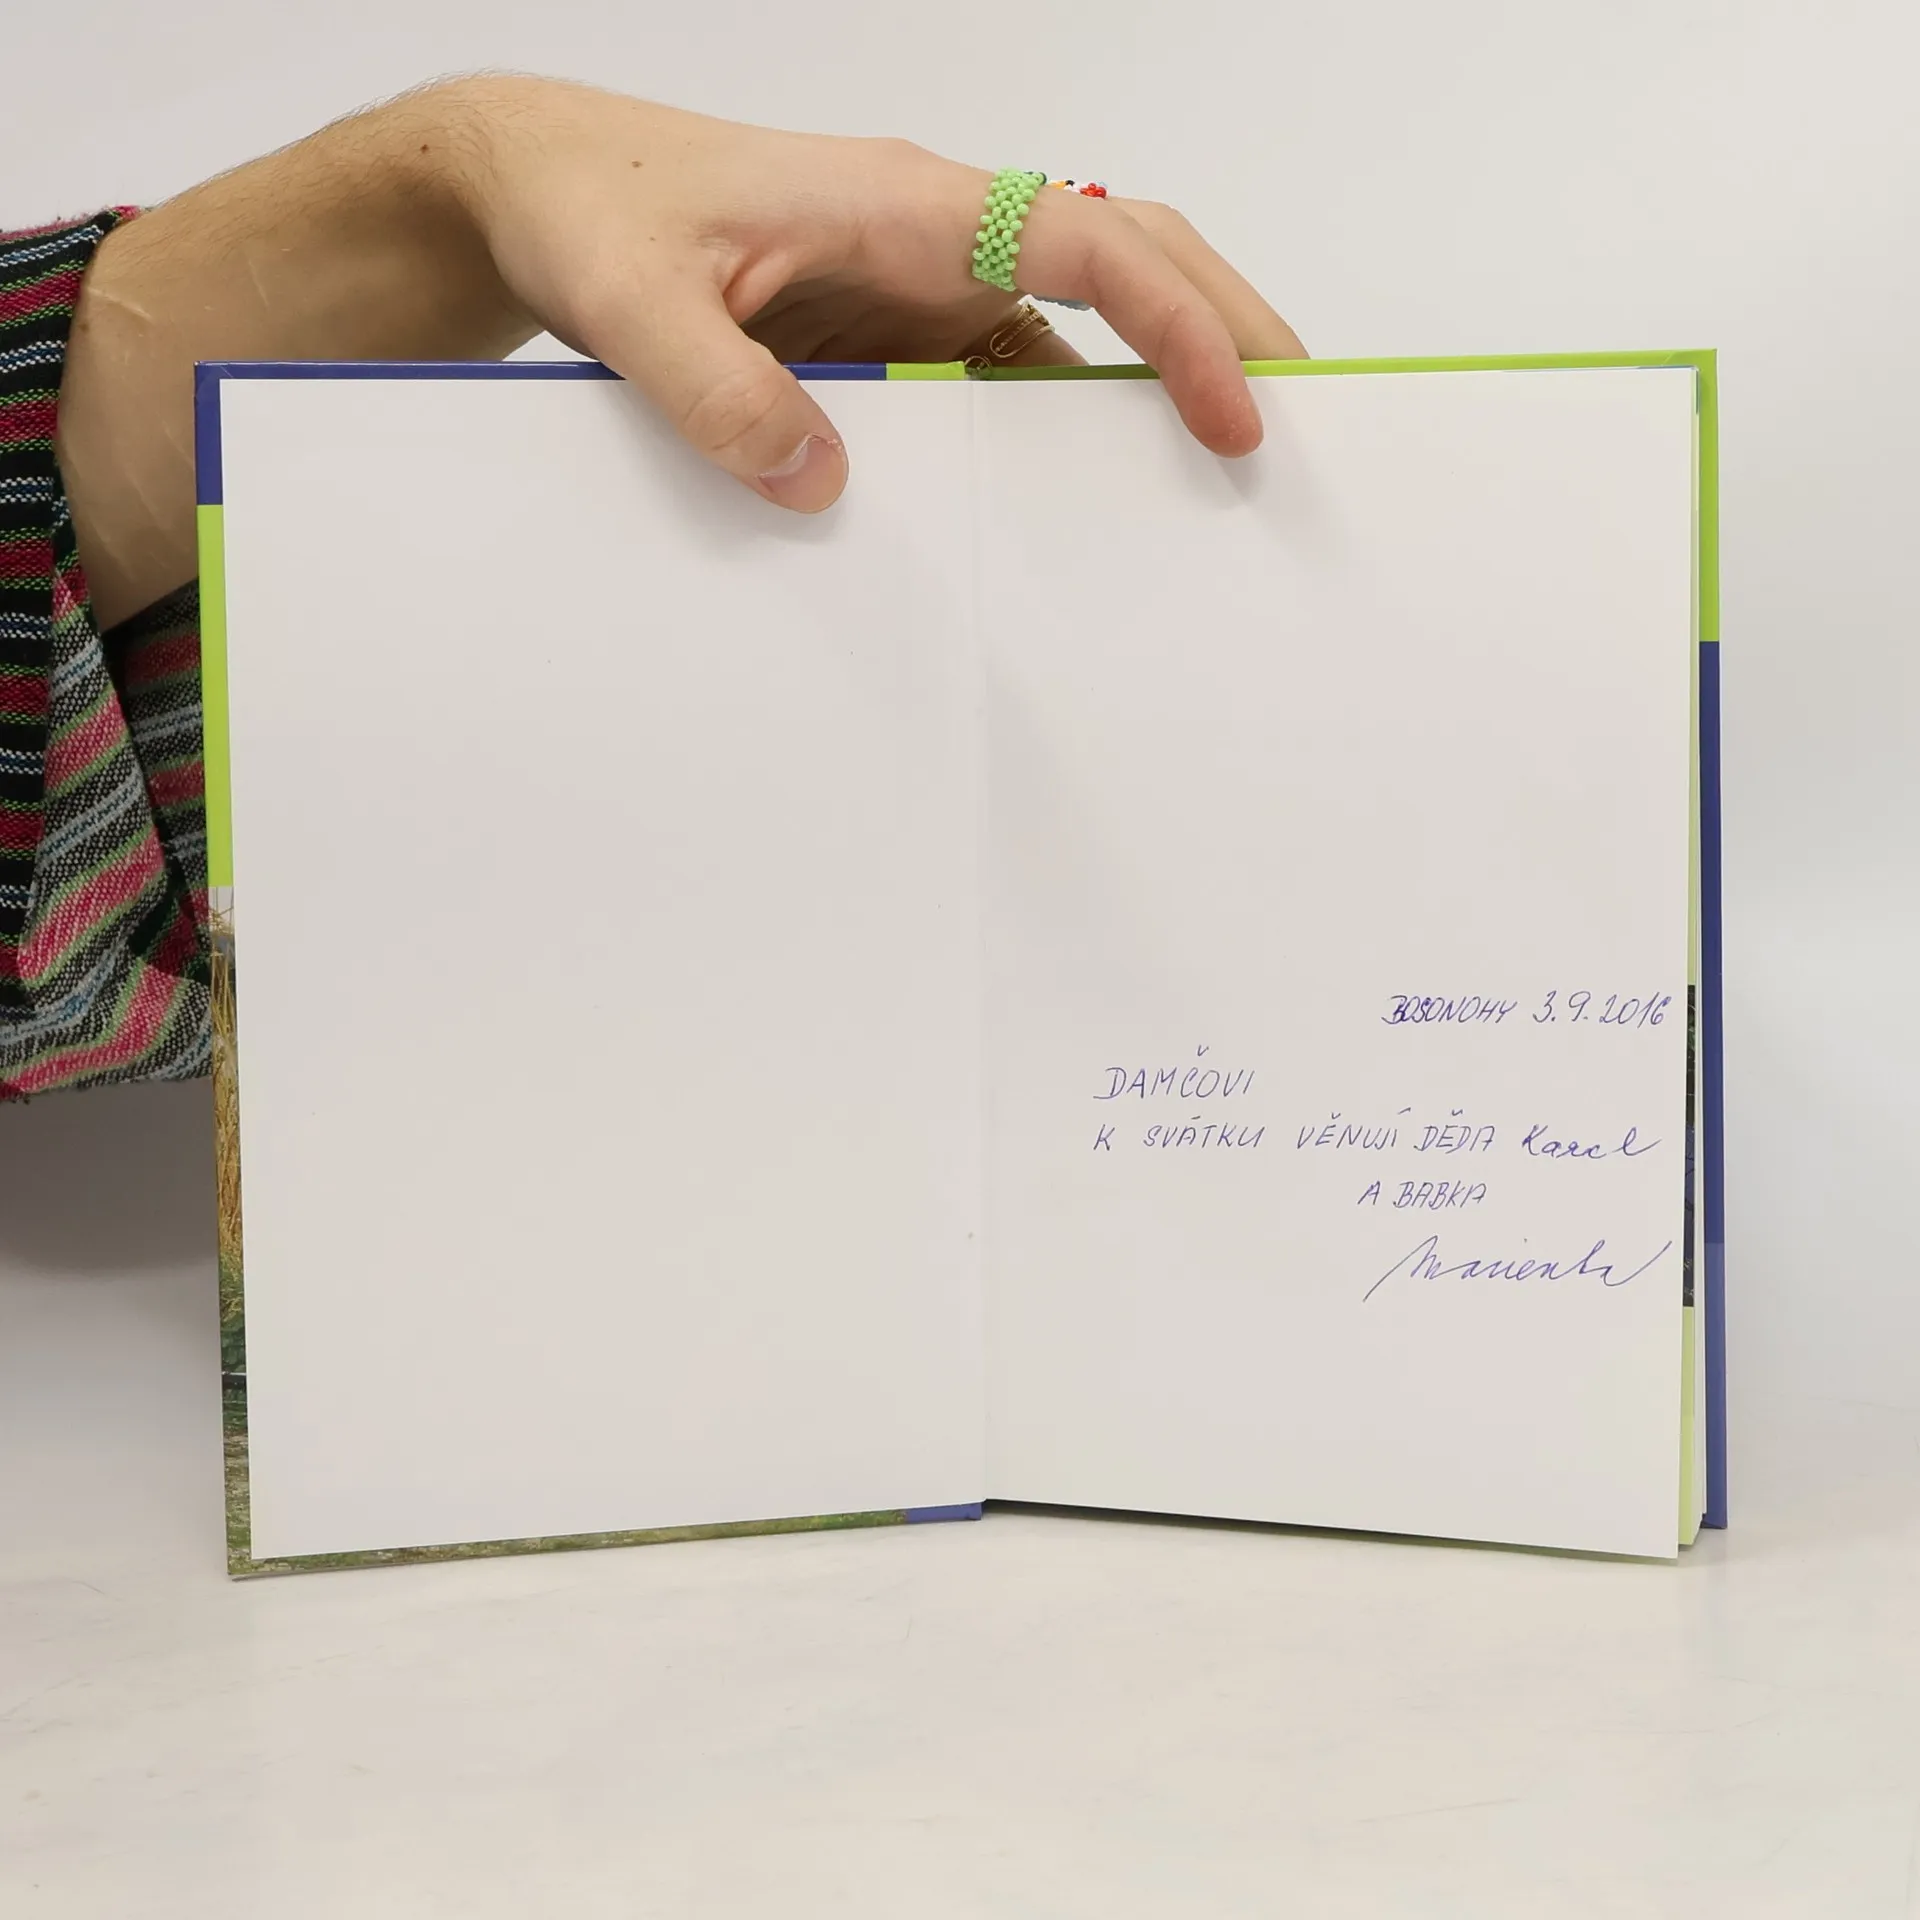 BOSONOHY 3.9.2016
DAMČOVI
K SVÁTKU VĚNUJÍ DĚDA Karel
A BABKA
Marienka